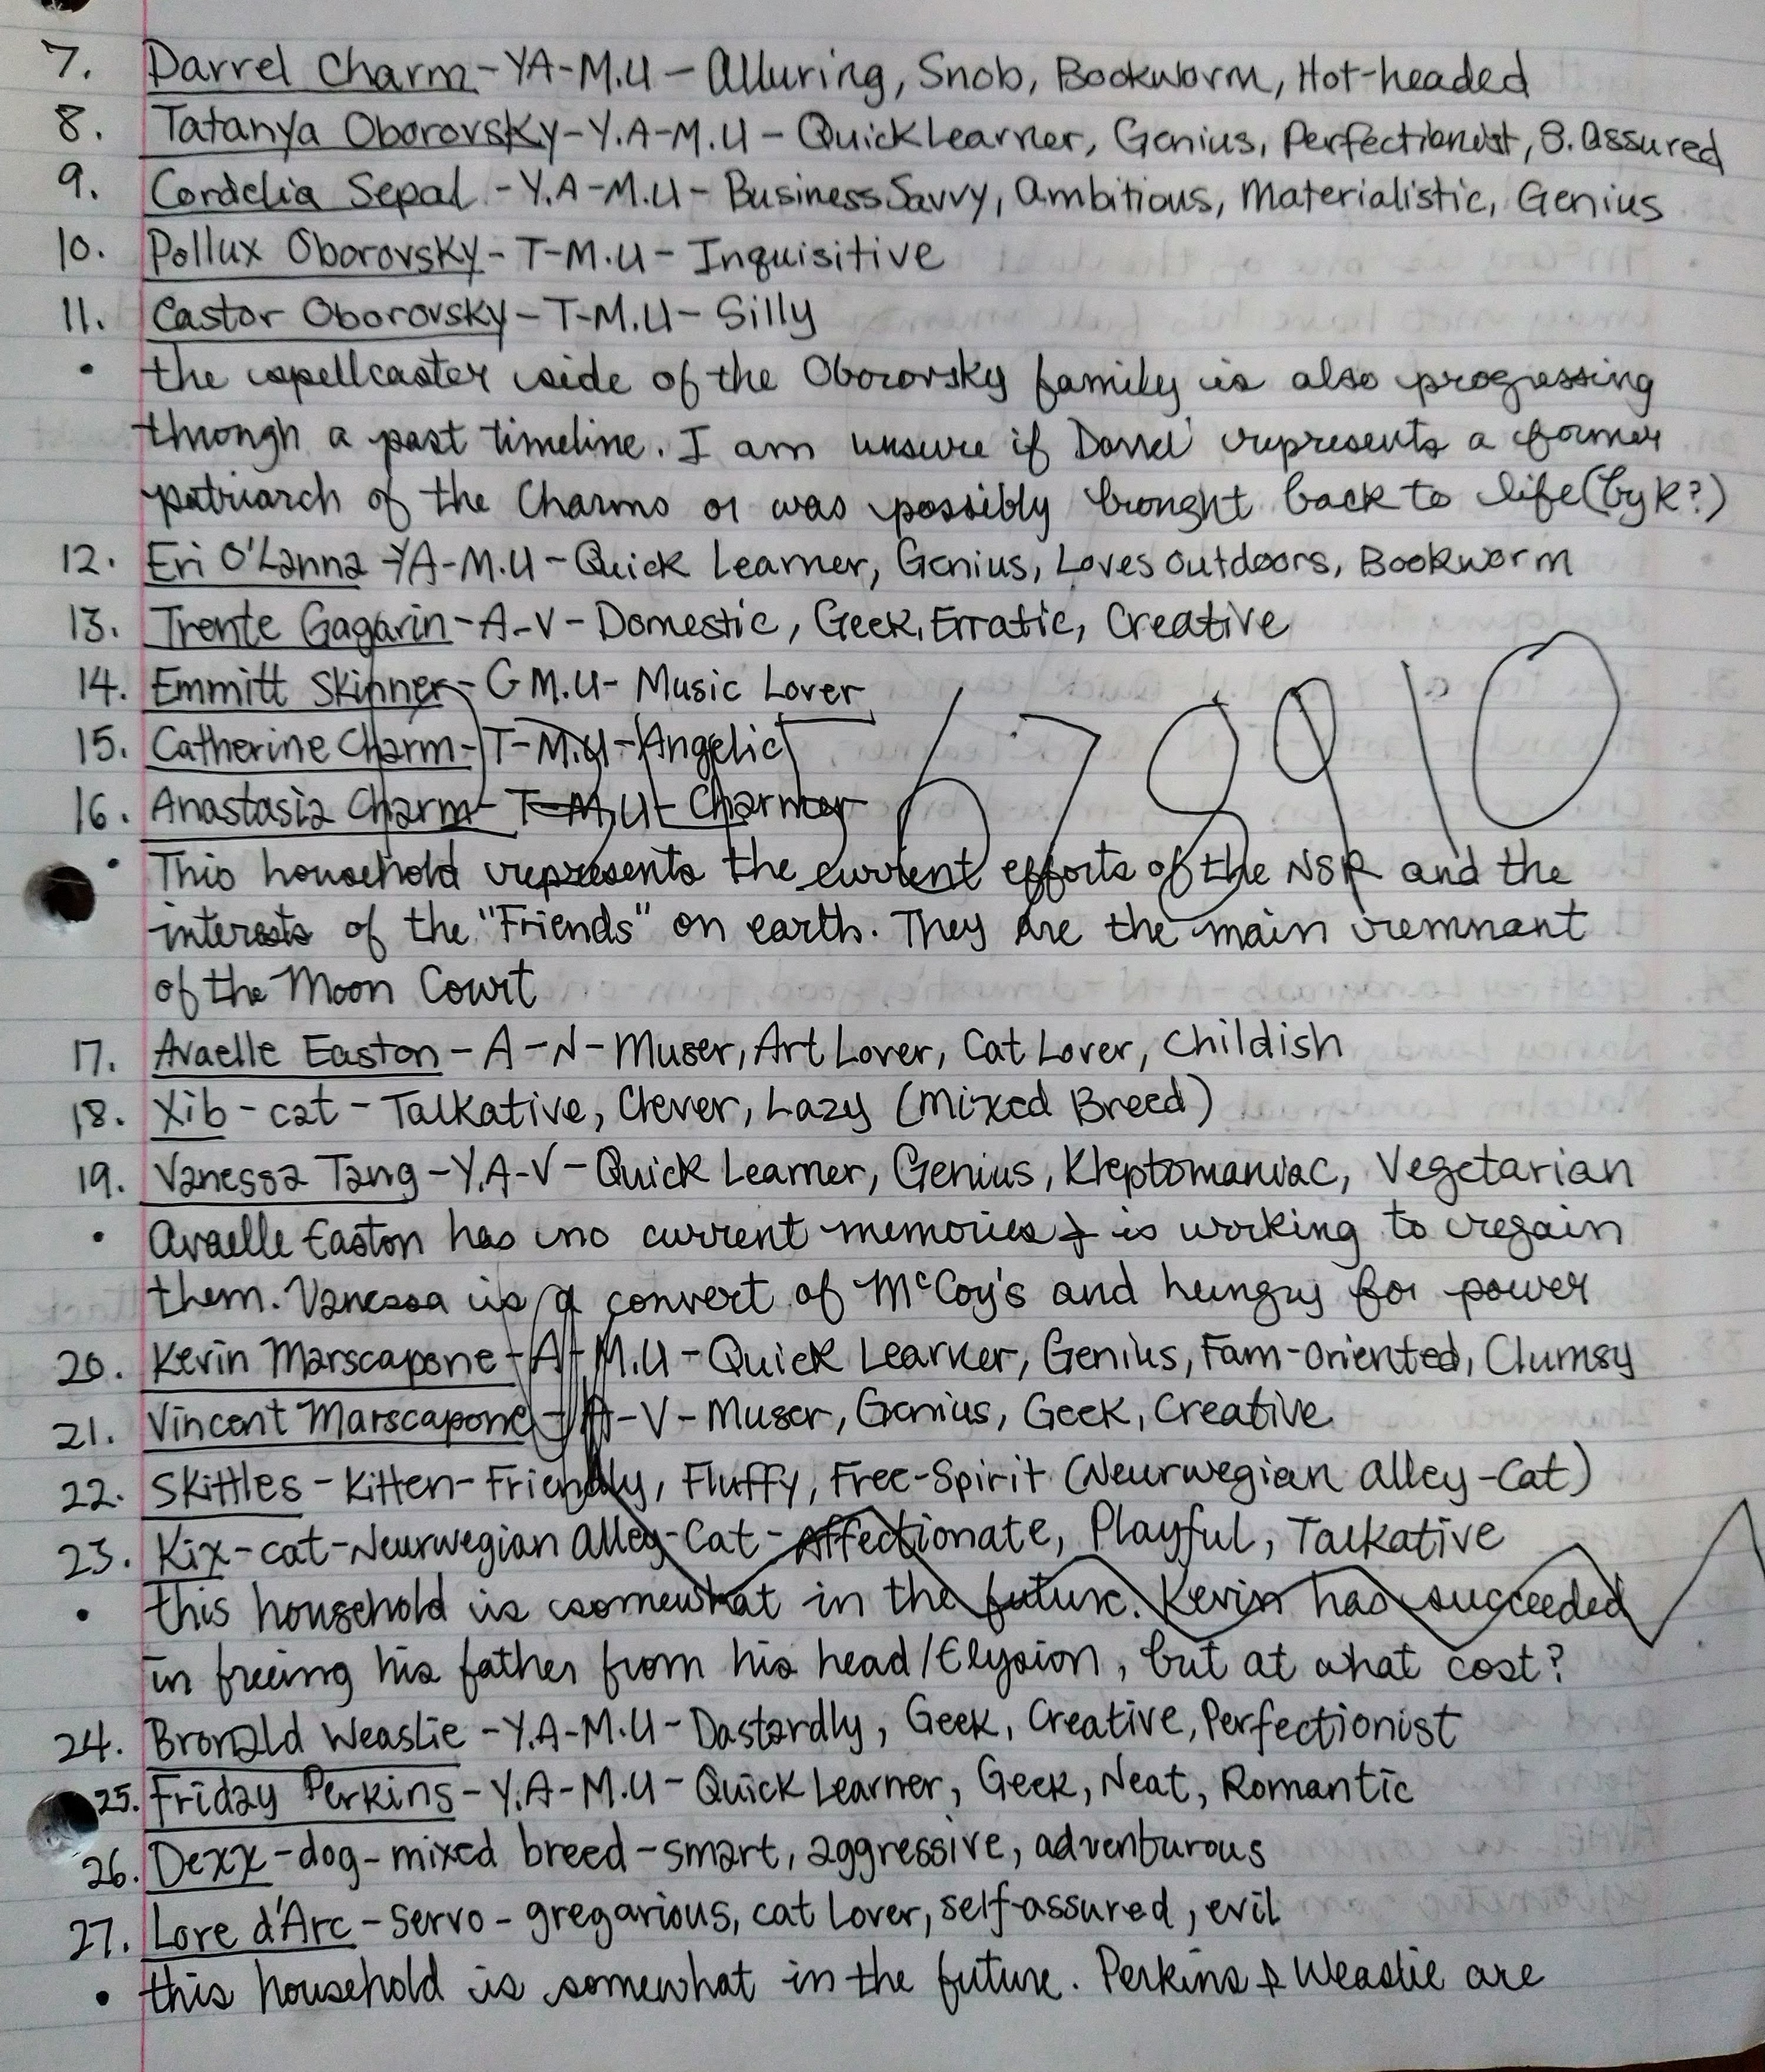 7. Darrel Charm - YA - M.U - Alluring, Snob, Bookworm, Hot-headed
8. Tatanya Oborovsky - Y.A - M.U - Quick Learner, Genius, Perfectionist, S. Assured
9. Cordelia Sepal - Y.A - M.U - Business Savvy, Ambitious, Materialistic, Genius
10. Pollux Oborovsky - T - M.U - Inquisitive
11. Castor Oborovsky - T - M.U - Silly
• the spellcaster side of the Oborovsky family is also progressing
through a past timeline. I am unsure if Darrel represents a former
patriarch of the Charms or was possibly brought back to life (by K?)
12. Eri O'Lanna YA - M.U - Quick Learner, Genius, Loves Outdoors, Bookworm
13. Trente Gagarin - A - V - Domestic, Geek, Erratic, Creative
14. Emmitt Skinner - C M.U - Music Lover
15. Catherine Charm - T - M.U - Angelic
16. Anastasia Charm - T - M.U - Charmer
6 7 8 9 10
• This household represents the current efforts of the NSR and the
interests of the "Friends" on earth. They are the main remnant
of the Moon Court
17. Avaelle Easton - A - N - Muser, Art Lover, Cat Lover, Childish
18. Xib - cat - Talkative, Clever, Lazy (Mixed Breed)
19. Vanessa Tang - Y.A - V - Quick Learner, Genius, Kleptomaniac, Vegetarian
• Avaelle Easton has no current memories & is working to regain
them. Vanessa is a convert of McCoy's and hungry for power
20. Kevin Marscapone - A - M.U - Quick Learner, Genius, Fam-Oriented, Clumsy
21. Vincent Marscapone - A - V - Muser, Genius, Geek, Creative
22. Skittles - Kitten - Friendly, Fluffy, Free-Spirit (Neurwegian Alley-Cat)
23. Kix - cat - Neurwegian Alley-Cat - Affectionate, Playful, Talkative
• this household is somewhat in the future. Kevin has succeeded
in freeing his father from his head/Elysion, but at what cost?
24. Bronald Weaslie - Y.A - M.U - Dastardly, Geek, Creative, Perfectionist
25. Friday Perkins - Y.A - M.U - Quick Learner, Geek, Neat, Romantic
26. Dexx - dog - mixed breed - smart, aggressive, adventurous
27. Lore d'Arc - Servo - gregarious, cat Lover, self-assured, evil
• this household is somewhat in the future. Perkins & Weaslie are